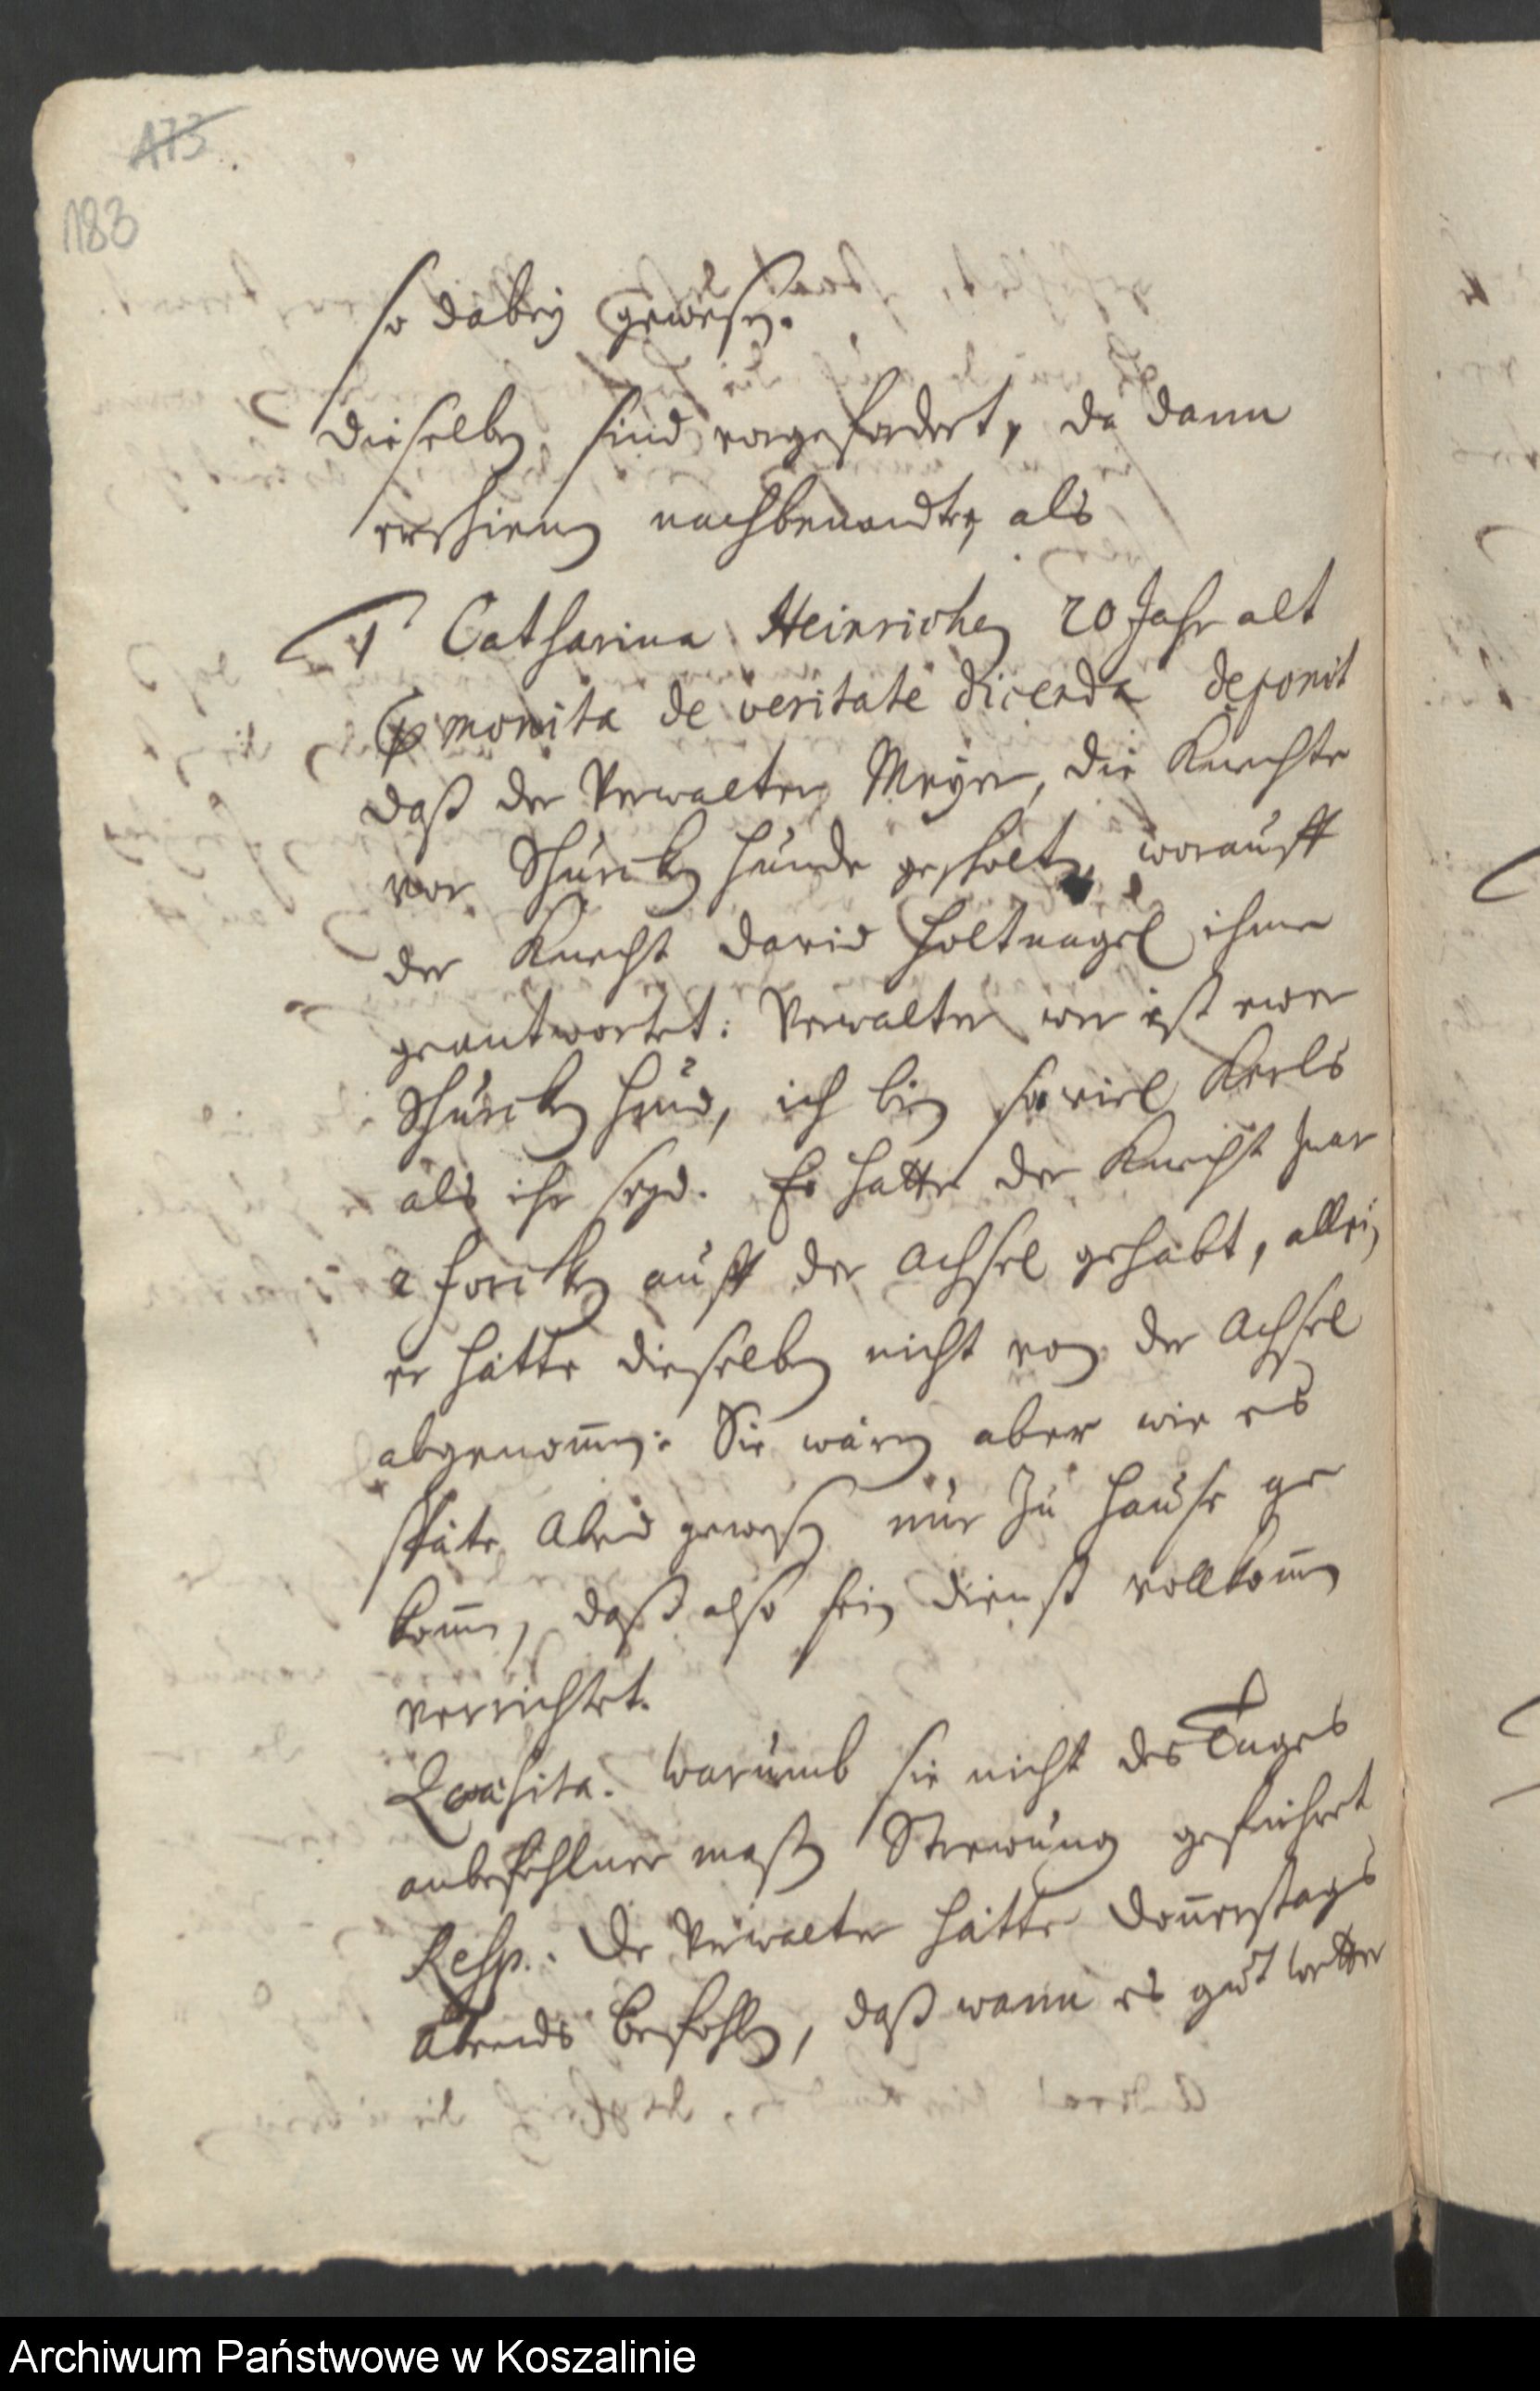 173
183
so dabey gewesen.
dieselben sind vorgefodert, da dann
erschienen nachbenandte, als
1 Catharina Heinrichen 20 Jahr alt
præmonita de veritate dicenda deponit
daß der Verwalter Meyer, die Knechte
vor Schurcken Hunde gescholten, worauff
der Knecht David Holtnagel ihme
geantwortet: Verwalter wer ist ewer
Schurcken Hund, ich bin so viel Kerls
als ihr seyd. Es hatte der Knecht zwar
2 Forcken auff der Achsel gehabt, allein
er hätte dieselben nicht von der Achsel
abgenom̄en: Sie wären aber wie es
späte Abend gewesen nur zu Hause ge
kom̄en, daß also sein Dienst vollkom̄en
verrichtet.
Quæsita. Warumb sie nicht des Tages
anbefohlner maßen Strewung geführet
Resp. Der Verwalter hätte Don̄erstags
Abends befohlen, daß wann es gut Wetter
Archiwum Państwowe w Koszalinie